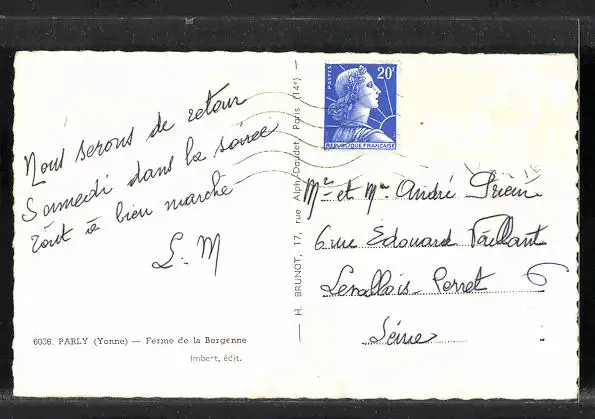 Nous serons de retour
Samedi dans la soirée
Tout a bien marché
L. M
6036. PARLY (Yonne) — Ferme de la Bergenne
Imbert, édit.
H. BRUNOT, 17, rue Alph.-Daudet, Paris (14e)
POSTES
20F
REPUBLIQUE FRANÇAISE
Mr et Mme André Prieur
6 rue Edouard Vaillant
Levallois-Perret
6
Seine